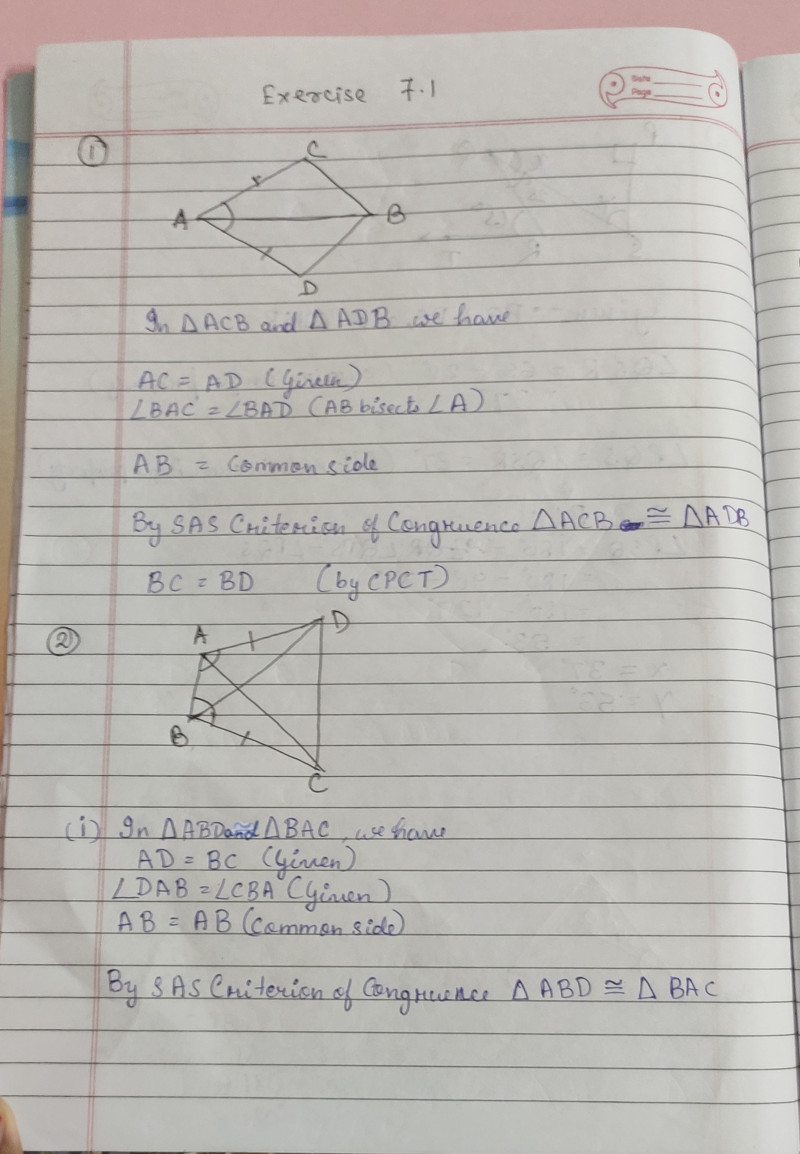 Exercise 7.1
Date
Page
①
C
A
B
D
In △ACB and △ADB we have
AC = AD (Given)
∠BAC = ∠BAD (AB bisects ∠A)
AB = Common side
By SAS Criterion of Congruence △ACB ≅ △ADB
BC = BD (by CPCT)
②
A
D
B
C
(i) In △ABD and △BAC, we have
AD = BC (Given)
∠DAB = ∠CBA (Given)
AB = AB (Common side)
By SAS Criterion of Congruence △ ABD ≅ △ BAC